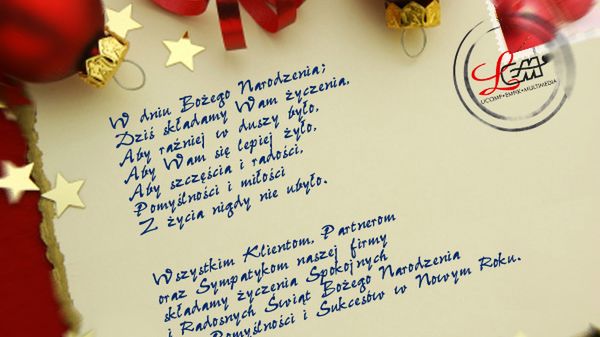 W dniu Bożego Narodzenia;
Dziś składamy Wam życzenia,
Aby raźniej w duszy było,
Aby Wam się lepiej żyło,
Aby szczęścia i radości,
Pomyślności i miłości
Z życia nigdy nie ubyło.
Wszystkim Klientom, Partnerom
oraz Sympatykom naszej firmy
składamy życzenia Spokojnych
i Radosnych Świąt Bożego Narodzenia
Pomyślności i Sukcesów w Nowym Roku.
LEM
UCOMP•EMPIK•MULTIMEDIA